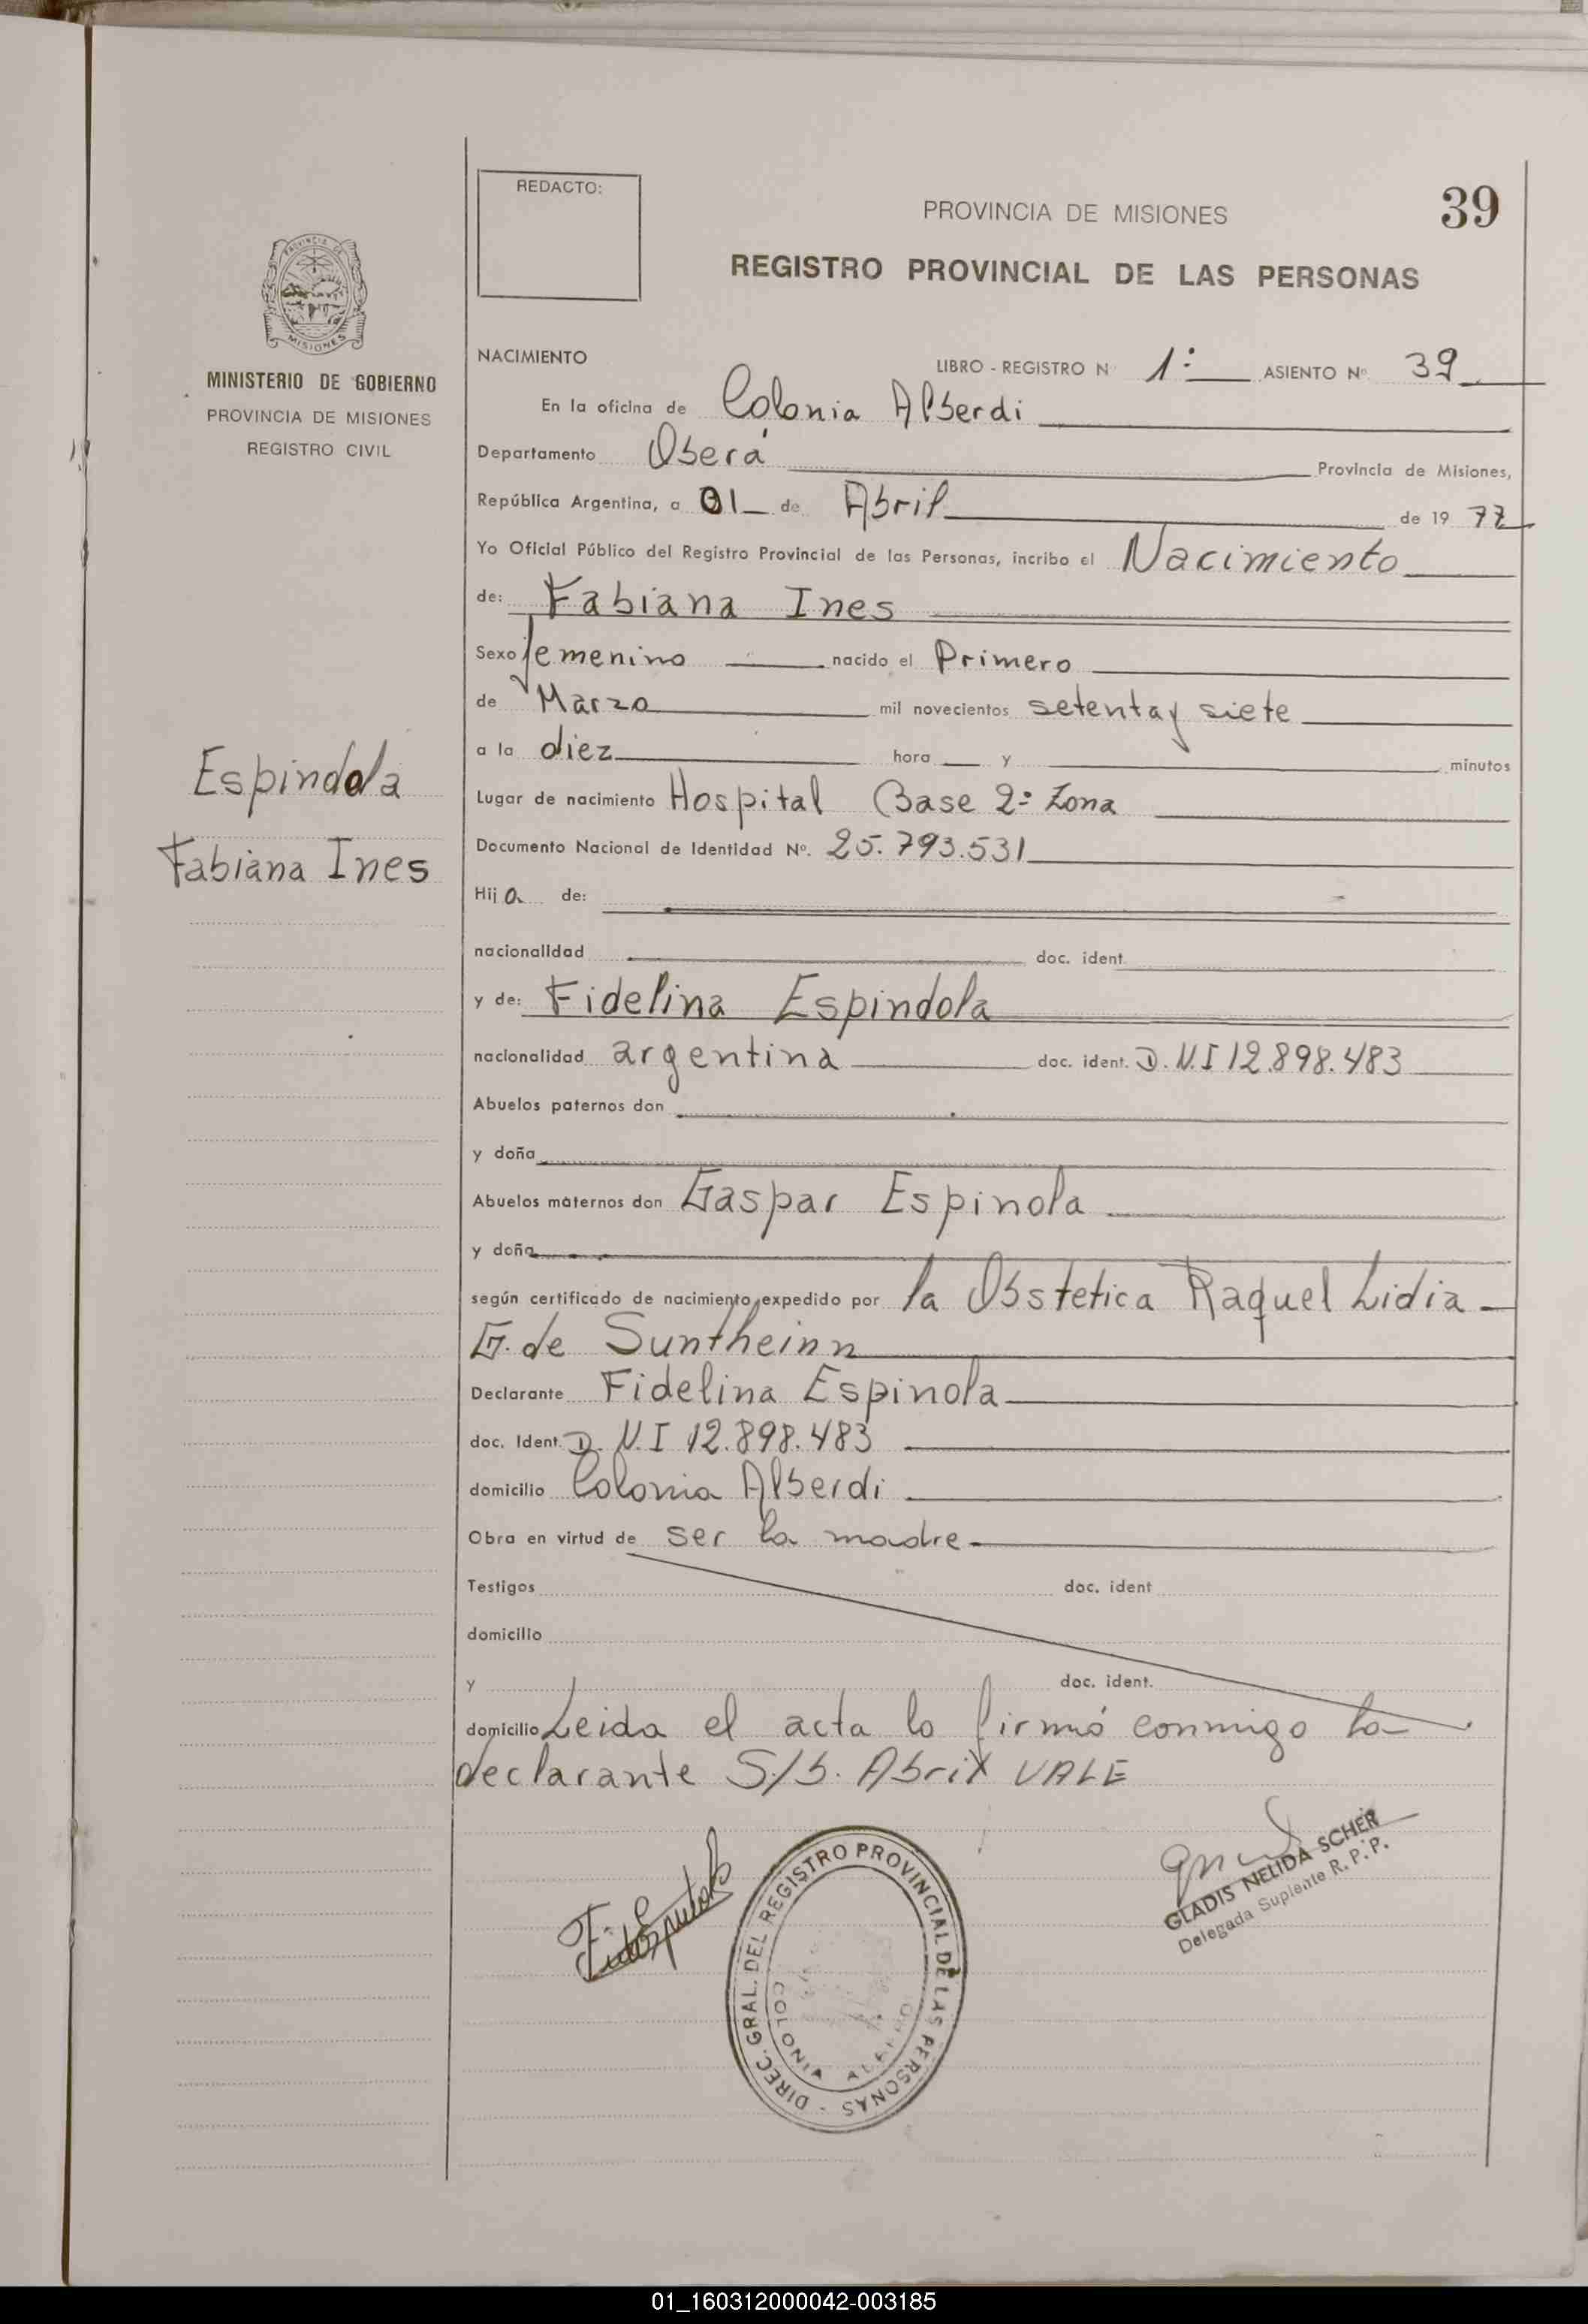 REDACTO:
PROVINCIA DE MISIONES
39
REGISTRO PROVINCIAL DE LAS PERSONAS
PROVINCIA DE
MISIONES
MINISTERIO DE GOBIERNO
PROVINCIA DE MISIONES
REGISTRO CIVIL
Espindola
Fabiana Ines
NACIMIENTO
LIBRO - REGISTRO N 1º ASIENTO Nº 39
En la oficina de Colonia Alberdi
Departamento Oberá Provincia de Misiones,
República Argentina, a 01 de Abril de 19 77
Yo Oficial Público del Registro Provincial de las Personas, incribo el Nacimiento
de: Fabiana Ines
Sexo femenino nacido el Primero
de Marzo mil novecientos setenta y siete
a la diez hora y minutos
Lugar de nacimiento Hospital Base 2º Zona
Documento Nacional de Identidad Nº. 25.793.531
Hija de:
nacionalidad doc. ident.
y de: Fidelina Espindola
nacionalidad argentina doc. ident. D.N.I 12.898.483
Abuelos paternos don
y doña
Abuelos maternos don Gaspar Espinola
y doña
según certificado de nacimiento expedido por la Obstetica Raquel Lidia
G. de Suntheinn
Declarante Fidelina Espinola
doc. Ident. D. N.I 12.898.483
domicilio Colonia Alberdi
Obra en virtud de ser la madre
Testigos doc. ident
domicilio
y doc. ident.
domicilio Leida el acta lo firmó conmigo la
declarante S/b. Abril VALE
GLADIS NELIDA SCHER
Delegada Suplente R. P. P.
DIREC. GRAL. DEL REGISTRO PROVINCIAL DE LAS PERSONAS -
COLONIA
01_160312000042-003185